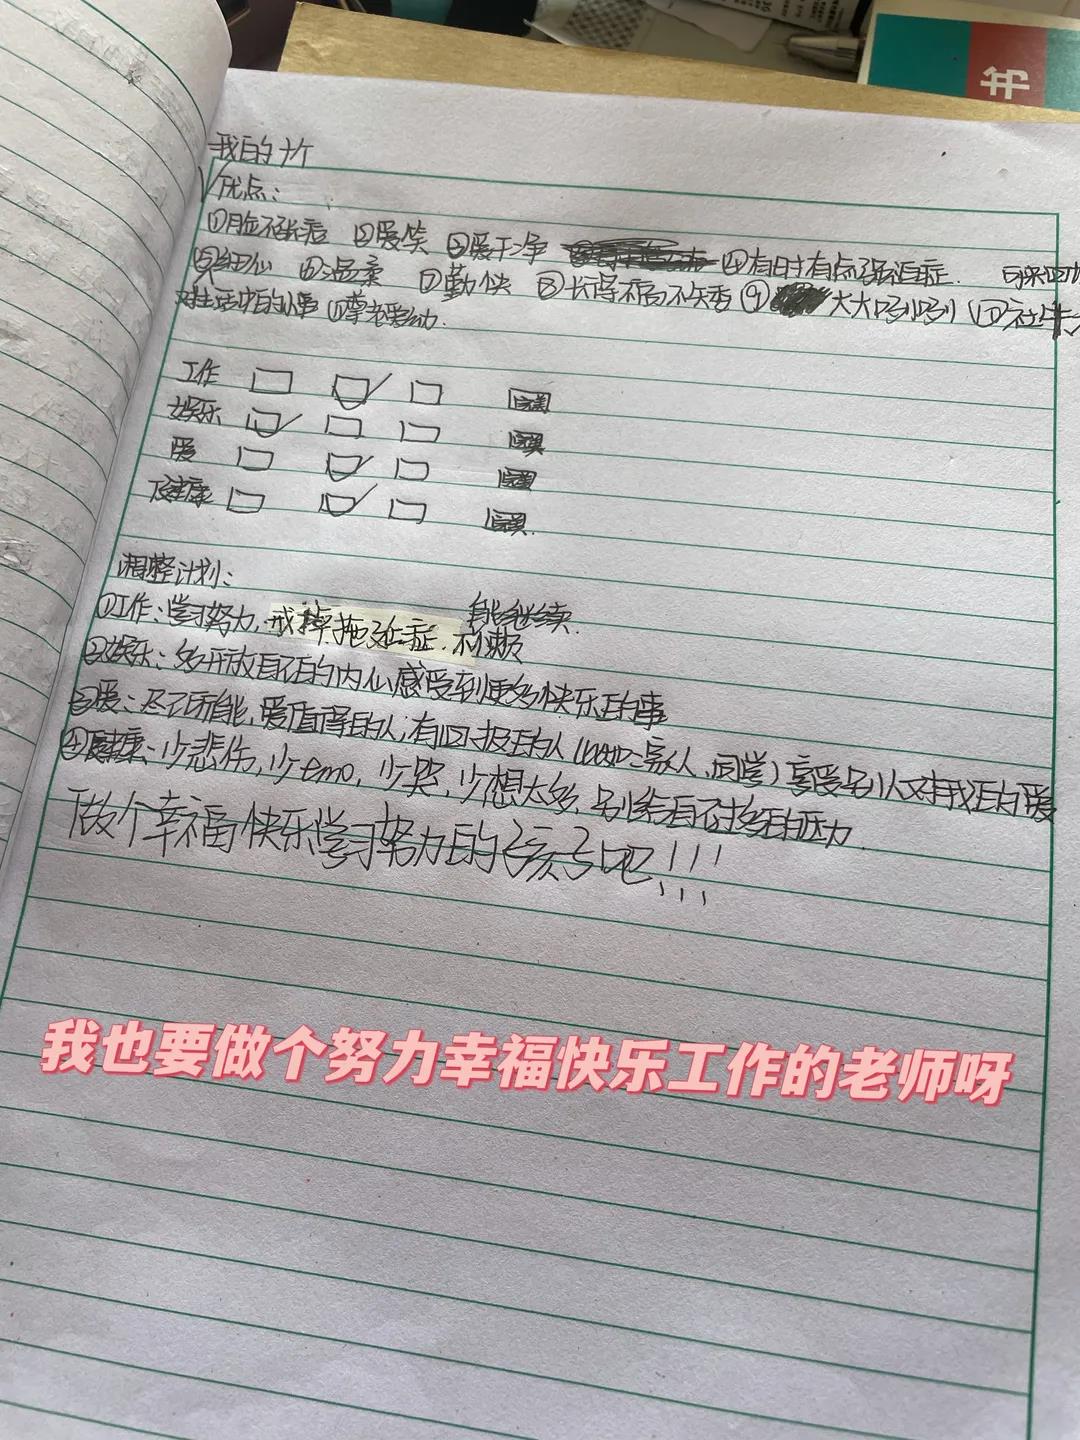 书
我的个
优点:
①脸不长痘 ②爱笑 ③爱干净 ④有时有点强迫症.
⑤细心 ⑥温柔 ⑦勤快 ⑧长得不高不矮 ⑨大大咧咧 ⑩社牛
对生活中的小事 ⑪尊老爱幼.
工作 完美
娱乐 完美
爱 完美
健康 完美.
调整计划:
①工作:学习努力,戒掉拖延症.不摆烂 能继续.
②娱乐:多开放自己的内心感受到更多快乐的事
③爱:尽己所能,爱值得的人;有回报的人(比如:家人、同学)享受别人对我的爱
④健康:少悲伤,少emo,少哭,少想太多,别给自己太多的压力.
做个幸福快乐学习努力的孩子吧!!!
我也要做个努力幸福快乐工作的老师呀